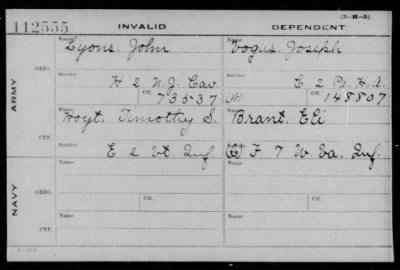 (3-H-5)
112555 INVALID DEPENDENT
Name Name
Lyons John Vogus Joseph
ORIG.
Service Service
H 2 N.J. Cav C 2 Pa. H.A.
Ctf. 73537 Ctf. 148807
ARMY
Name Name
Hoyt, Timothy S. Brant, Eli
CTF.
Service Service
E 2 Vt. Inf. F 7 W Va. Inf.
Name Name
ORIG.
Ctf. Ctf.
NAVY
Name Name
CTF.